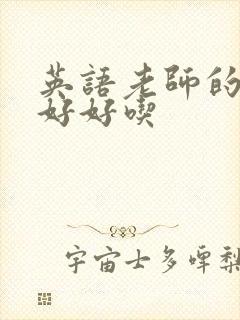 英語老師的
好好喫
宇宙士多啤梨